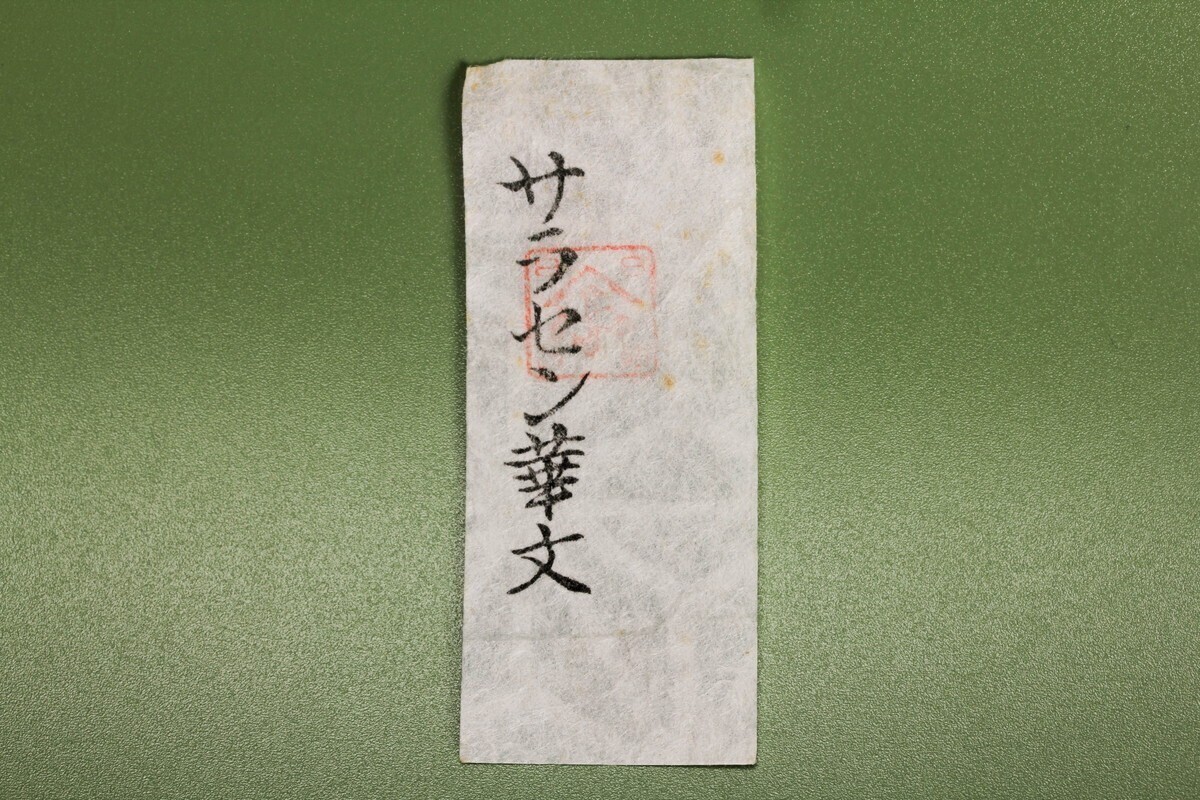 サラセン華文